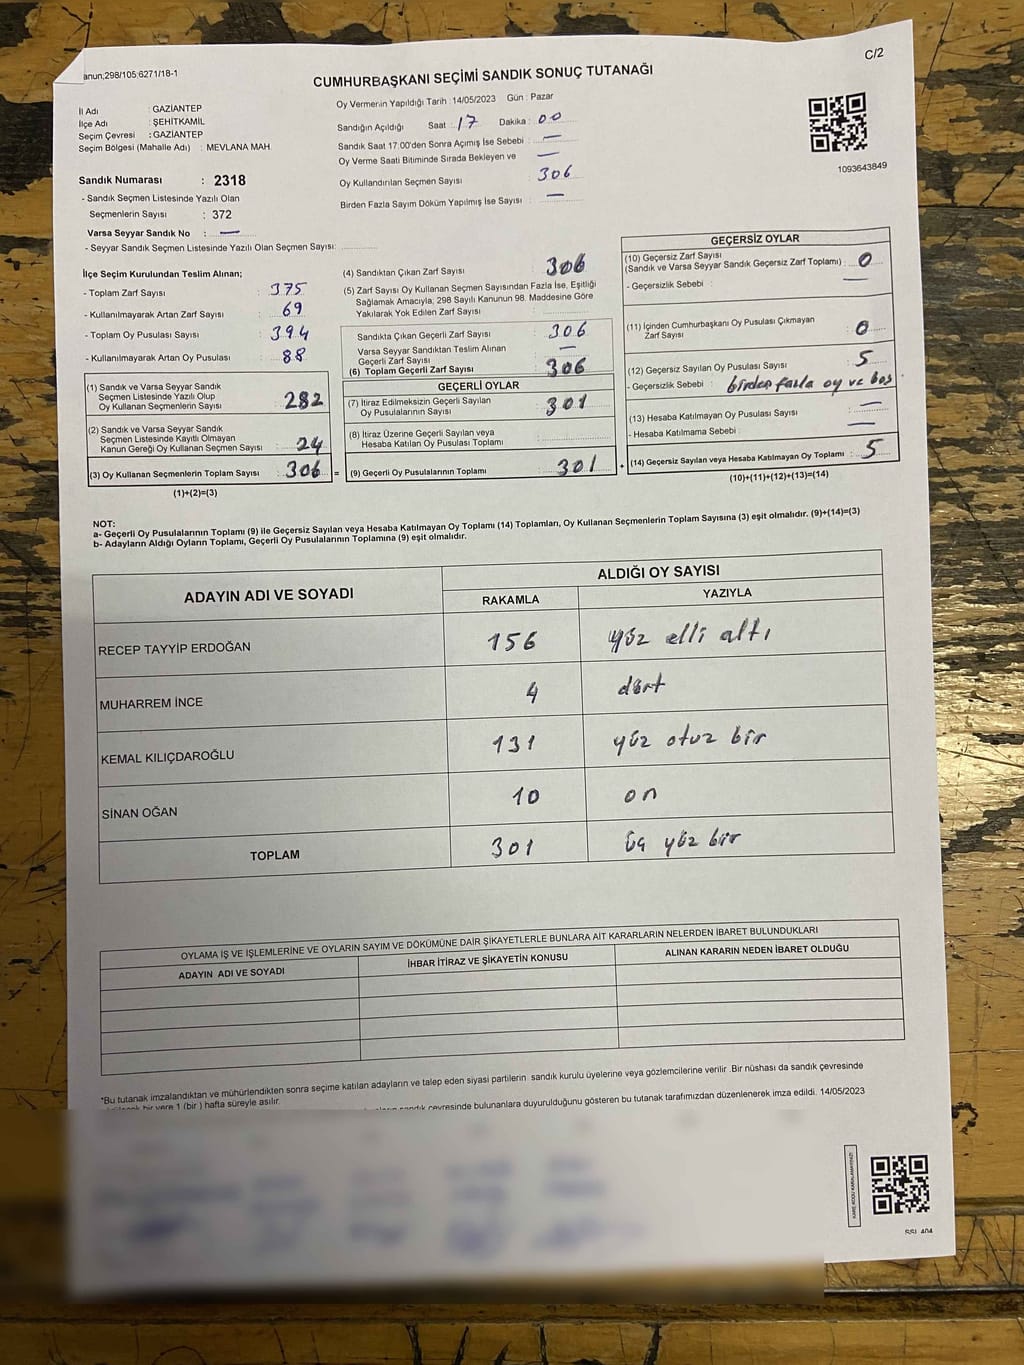 anun;298/105;6271/18-1
C/2
CUMHURBAŞKANI SEÇİMİ SANDIK SONUÇ TUTANAĞI
İl Adı : GAZİANTEP
İlçe Adı : ŞEHİTKAMİL
Seçim Çevresi : GAZİANTEP
Seçim Bölgesi (Mahalle Adı) : MEVLANA MAH.
Sandık Numarası : 2318
- Sandık Seçmen Listesinde Yazılı Olan
Seçmenlerin Sayısı : 372
Varsa Seyyar Sandık No : —
- Seyyar Sandık Seçmen Listesinde Yazılı Olan Seçmen Sayısı:
Oy Vermenin Yapıldığı Tarih : 14/05/2023 Gün : Pazar
Sandığın Açıldığı Saat : 17 Dakika : 00
Sandık Saat 17.00'den Sonra Açımış İse Sebebi : —
Oy Verme Saati Bitiminde Sırada Bekleyen ve —
Oy Kullandırılan Seçmen Sayısı : 306
Birden Fazla Sayım Döküm Yapılmış İse Sayısı : —
1093643849
İlçe Seçim Kurulundan Teslim Alınan;
- Toplam Zarf Sayısı : 375
- Kullanılmayarak Artan Zarf Sayısı : 69
- Toplam Oy Pusulası Sayısı : 394
- Kullanılmayarak Artan Oy Pusulası : 88
(1) Sandık ve Varsa Seyyar Sandık
Seçmen Listesinde Yazılı Olup
Oy Kullanan Seçmenlerin Sayısı : 282
(2) Sandık ve Varsa Seyyar Sandık
Seçmen Listesinde Kayıtlı Olmayan
Kanun Gereği Oy Kullanan Seçmen Sayısı : 24
(3) Oy Kullanan Seçmenlerin Toplam Sayısı : 306 =
(1)+(2)=(3)
(4) Sandıktan Çıkan Zarf Sayısı : 306
(5) Zarf Sayısı Oy Kullanan Seçmen Sayısından Fazla İse, Eşitliği
Sağlamak Amacıyla; 298 Sayılı Kanunun 98. Maddesine Göre
Yakılarak Yok Edilen Zarf Sayısı :
Sandıkta Çıkan Geçerli Zarf Sayısı : 306
Varsa Seyyar Sandıktan Teslim Alınan
Geçerli Zarf Sayısı : —
(6) Toplam Geçerli Zarf Sayısı : 306
GEÇERLİ OYLAR
(7) İtiraz Edilmeksizin Geçerli Sayılan
Oy Pusulalarının Sayısı : 301
(8) İtiraz Üzerine Geçerli Sayılan veya
Hesaba Katılan Oy Pusulası Toplamı :
(9) Geçerli Oy Pusulalarının Toplamı : 301 +
GEÇERSİZ OYLAR
(10) Geçersiz Zarf Sayısı
(Sandık ve Varsa Seyyar Sandık Geçersiz Zarf Toplamı) : 0
- Geçersizlik Sebebi : —
(11) İçinden Cumhurbaşkanı Oy Pusulası Çıkmayan
Zarf Sayısı : 0
(12) Geçersiz Sayılan Oy Pusulası Sayısı : 5
- Geçersizlik Sebebi : birden fazla oy ve boş
(13) Hesaba Katılmayan Oy Pusulası Sayısı : —
- Hesaba Katılmama Sebebi : —
(14) Geçersiz Sayılan veya Hesaba Katılmayan Oy Toplamı : 5
(10)+(11)+(12)+(13)=(14)
NOT:
a- Geçerli Oy Pusulalarının Toplamı (9) ile Geçersiz Sayılan veya Hesaba Katılmayan Oy Toplamı (14) Toplamları, Oy Kullanan Seçmenlerin Toplam Sayısına (3) eşit olmalıdır. (9)+(14)=(3)
b- Adayların Aldığı Oyların Toplamı, Geçerli Oy Pusulalarının Toplamına (9) eşit olmalıdır.
ADAYIN ADI VE SOYADI ALDIĞI OY SAYISI
RAKAMLA YAZIYLA
RECEP TAYYİP ERDOĞAN 156 yüz elli altı
MUHARREM İNCE 4 dört
KEMAL KILIÇDAROĞLU 131 yüz otuz bir
SİNAN OĞAN 10 on
TOPLAM 301 üç yüz bir
OYLAMA İŞ VE İŞLEMLERİNE VE OYLARIN SAYIM VE DÖKÜMÜNE DAİR ŞİKAYETLERLE BUNLARA AİT KARARLARIN NELERDEN İBARET BULUNDUKLARI
ADAYIN ADI VE SOYADI İHBAR İTİRAZ VE ŞİKAYETİN KONUSU ALINAN KARARIN NEDEN İBARET OLDUĞU
*Bu tutanak imzalandıktan ve mühürlendikten sonra seçime katılan adayların ve talep eden siyasi partilerin sandık kurulu üyelerine veya gözlemcilerine verilir .Bir nüshası da sandık çevresinde
bir yere 1 (bir ) hafta süreyle asılır.
sandık çevresinde bulunanlara duyurulduğunu gösteren bu tutanak tarafımızdan düzenlenerek imza edildi. 14/05/2023